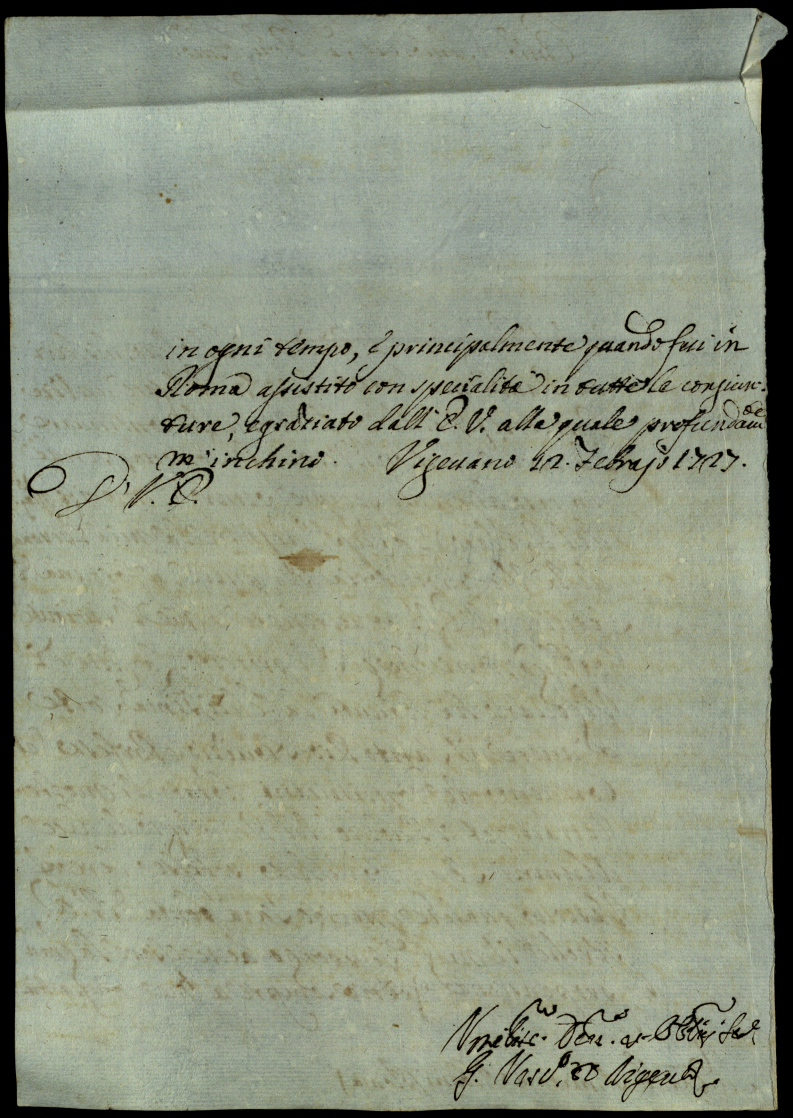 in ogni tempo, e principalmente quando fui in
Roma assistito con specialità in tutte le congiun-
ture, e graziato dall' E. V. alla quale profundam.te
m' inchino. Vigevano 12. Febrajo 1727.
D' V. E.
Umiliss.o Dev.o et Obb.mo Ser.
G. Vesc.o di Vigevano